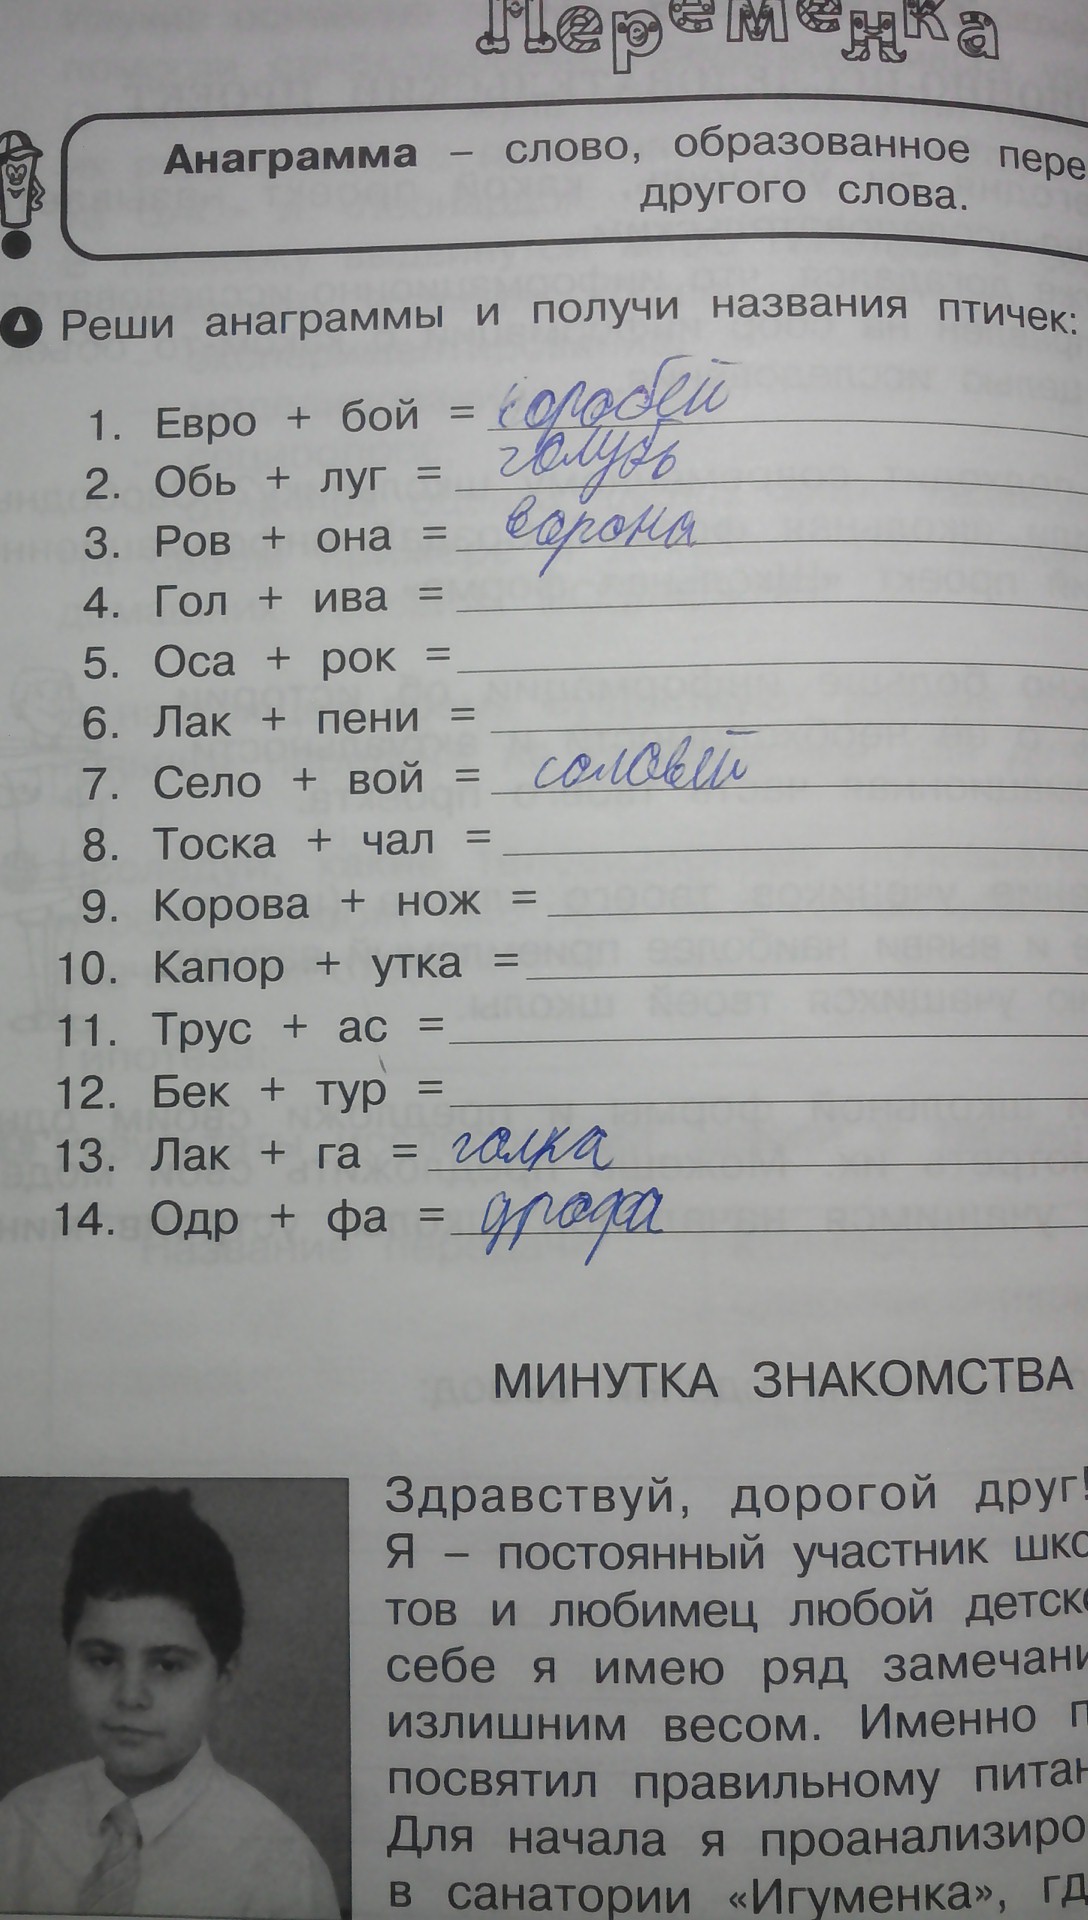 Переменка
Анаграмма – слово, образованное пере
другого слова.
Реши анаграммы и получи названия птичек:
1. Евро + бой = воробей
2. Обь + луг = голубь
3. Ров + она = ворона
4. Гол + ива =
5. Оса + рок =
6. Лак + пени =
7. Село + вой = соловей
8. Тоска + чал =
9. Корова + нож =
10. Капор + утка =
11. Трус + ас =
12. Бек + тур =
13. Лак + га = галка
14. Одр + фа = дрофа
МИНУТКА ЗНАКОМСТВА
Здравствуй, дорогой друг!
Я – постоянный участник шко
тов и любимец любой детск
себе я имею ряд замечани
излишним весом. Именно п
посвятил правильному питан
Для начала я проанализиро
в санатории «Игуменка», гд